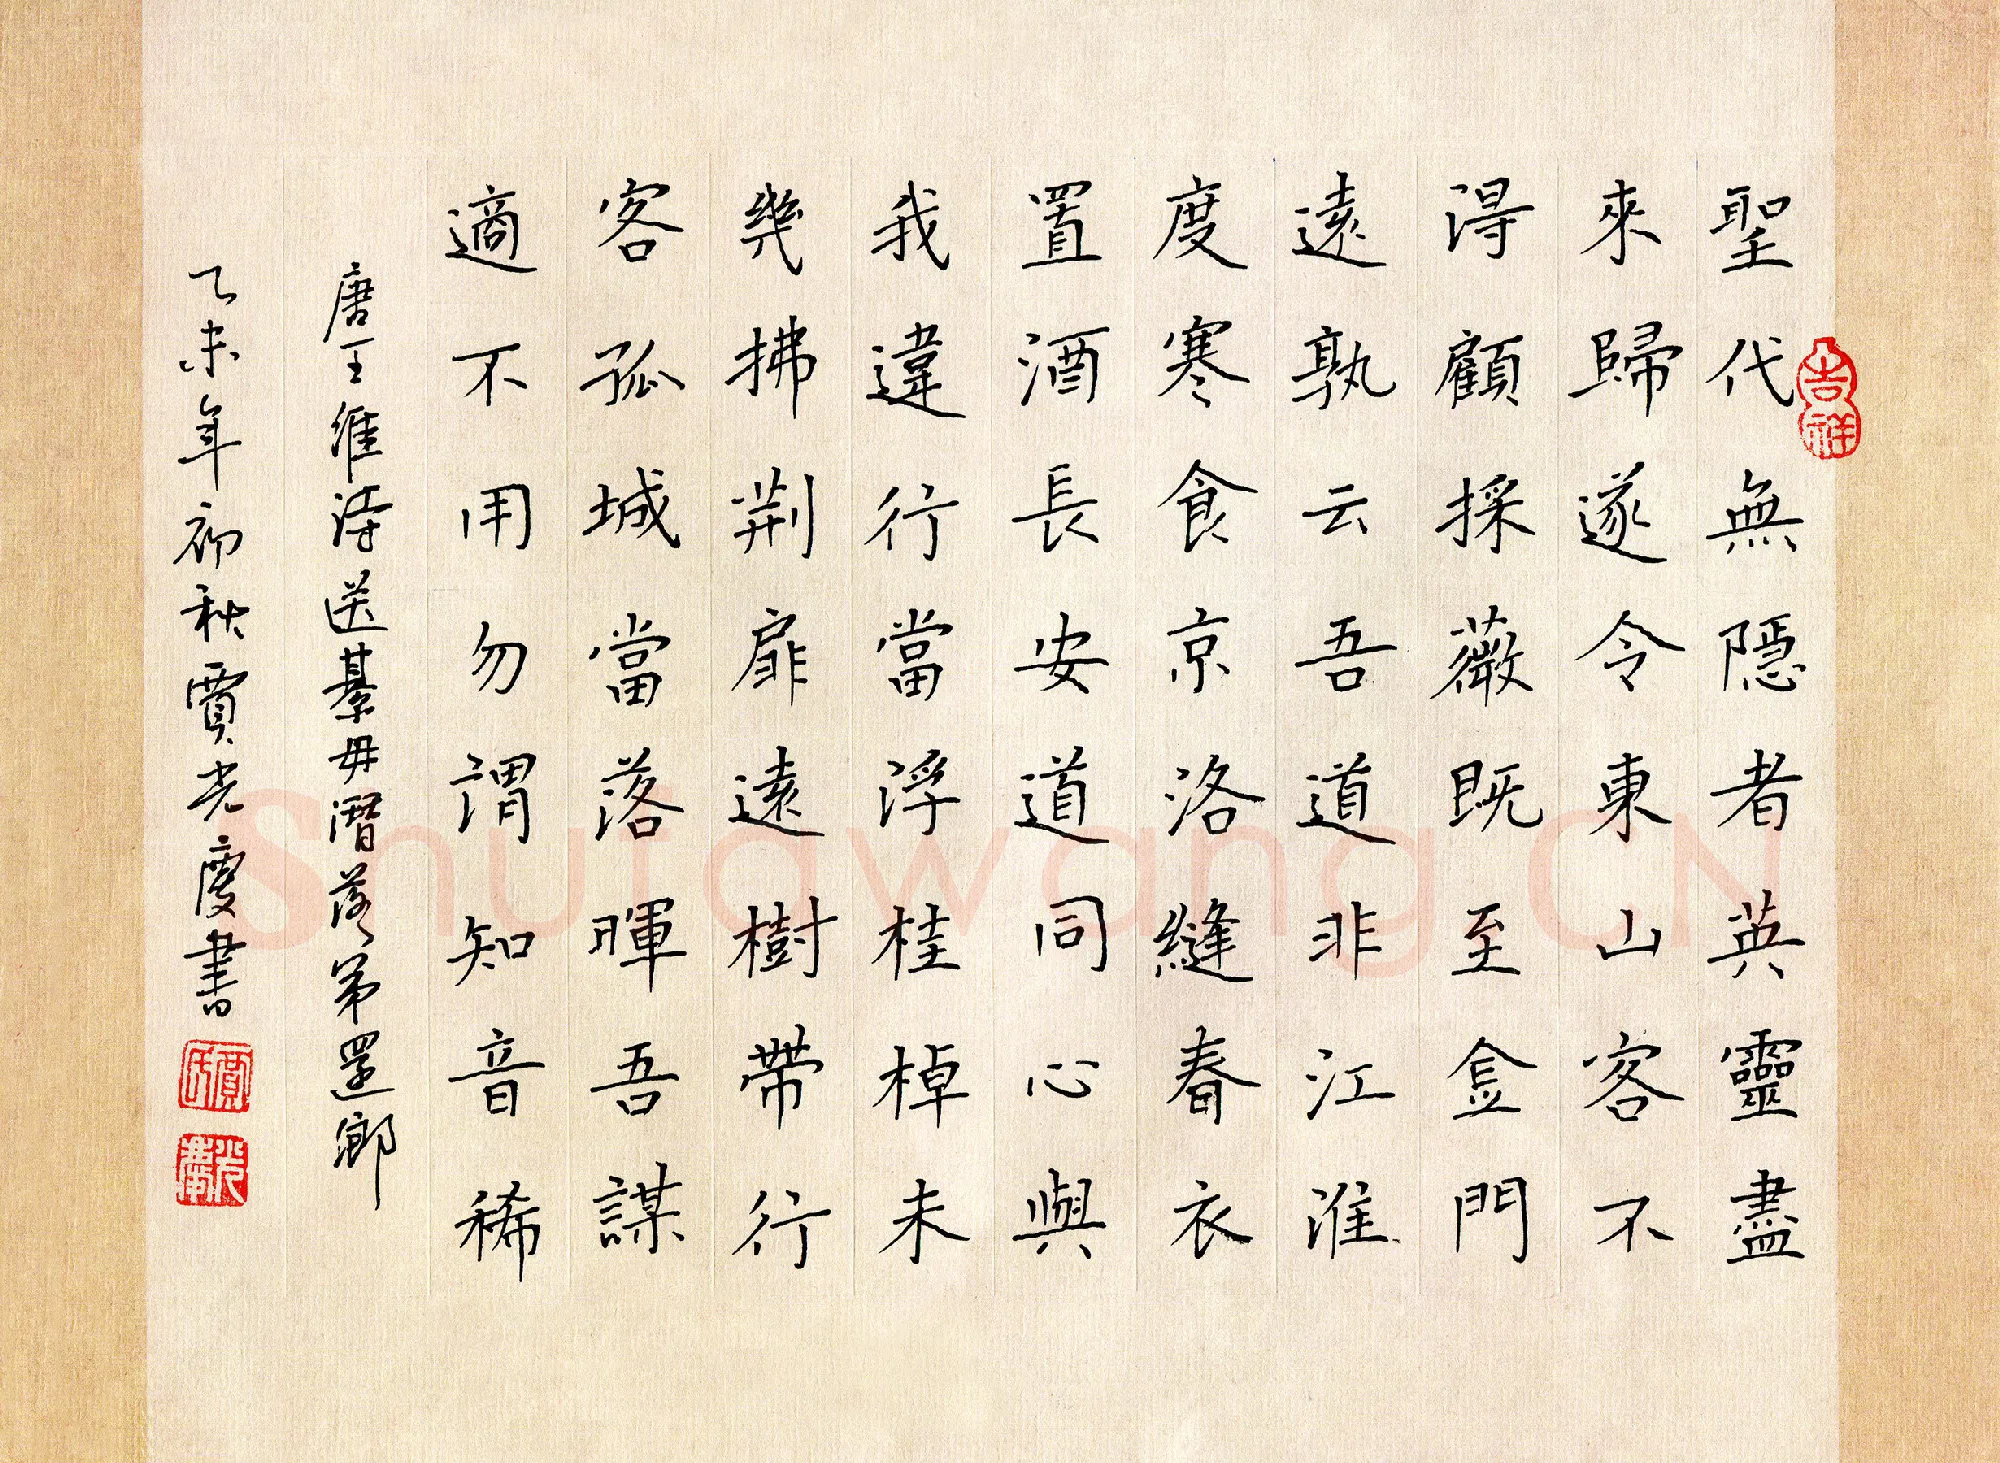 聖代無隱者英靈盡
來歸遂令東山客不
得顧採薇既至金門
遠孰云吾道非江淮
度寒食京洛縫春衣
置酒長安道同心與
我違行當浮桂棹未
幾拂荊扉遠樹帶行
客孤城當落暉吾謀
適不用勿謂知音稀
唐王維詩送綦毋潛落第還鄉
乙未年初秋賈光慶書
吉祥
賈氏
光慶
Shufawang.CN